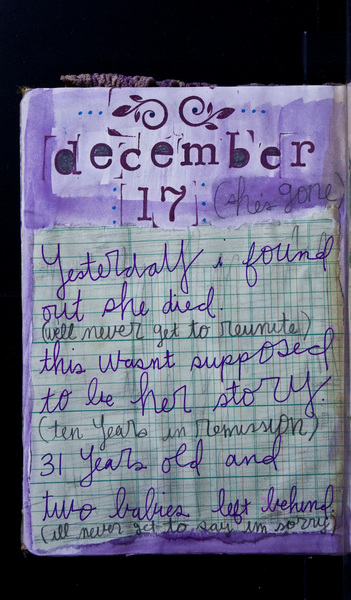 december
17 (she's gone)
Yesterday i found
out she died.
(well never get to reunite)
this wasnt supposed
to be her story.
(ten years in remission)
31 years old and
two babies left behind.
(ill never get to say im sorry)